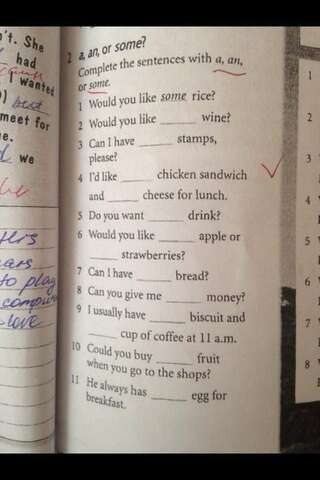 't. She
had
I wanted
best
meet for
e.
we
2 a, an, or some?
Complete the sentences with a, an,
or some.
1 Would you like some rice?
2 Would you like ______ wine?
3 Can I have ______ stamps,
please?
4 I'd like ______ chicken sandwich
and ______ cheese for lunch.
5 Do you want ______ drink?
6 Would you like ______ apple or
______ strawberries?
7 Can I have ______ bread?
8 Can you give me ______ money?
9 I usually have ______ biscuit and
______ cup of coffee at 11 a.m.
10 Could you buy ______ fruit
when you go to the shops?
11 He always has ______ egg for
breakfast.
to play
love
1
2
3
4
5
6
7
8